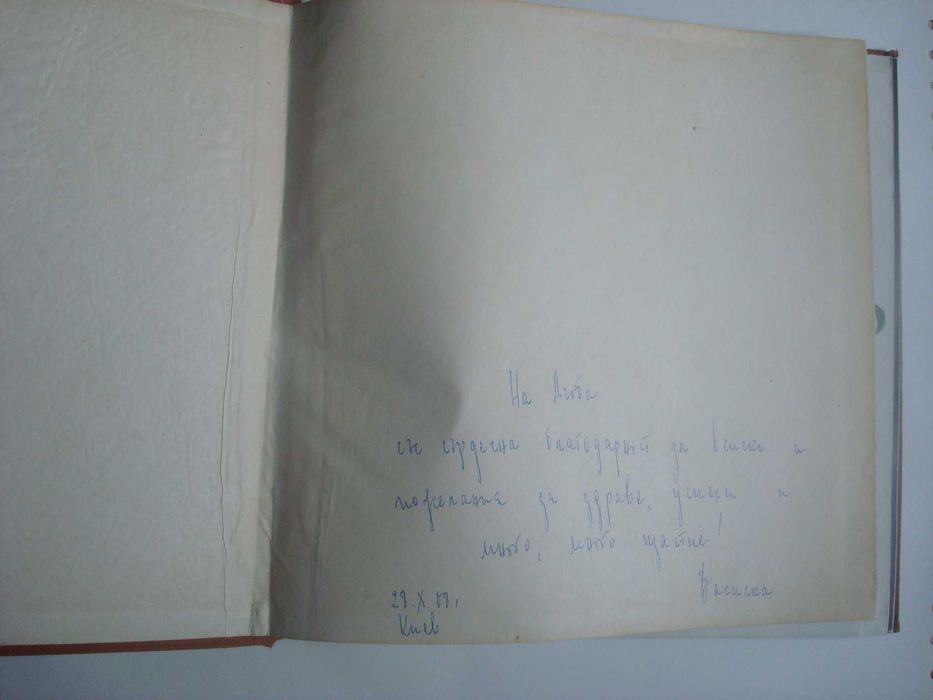 На Люба
със сърдечна благодарност за всичко и
пожелания за здраве, успехи и
много, много щастие!
28.X.69,
Киев